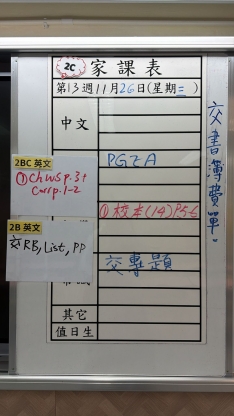 2C 家課表
第13週11月26日(星期三)
中文
PG2A
2BC 英文
① Ch WS p.3+
Corr p.1-2
① 校本(14)P.5-6
2B 英文
交 RB, List, PP
交專題
其它
值日生
交書簿費單。